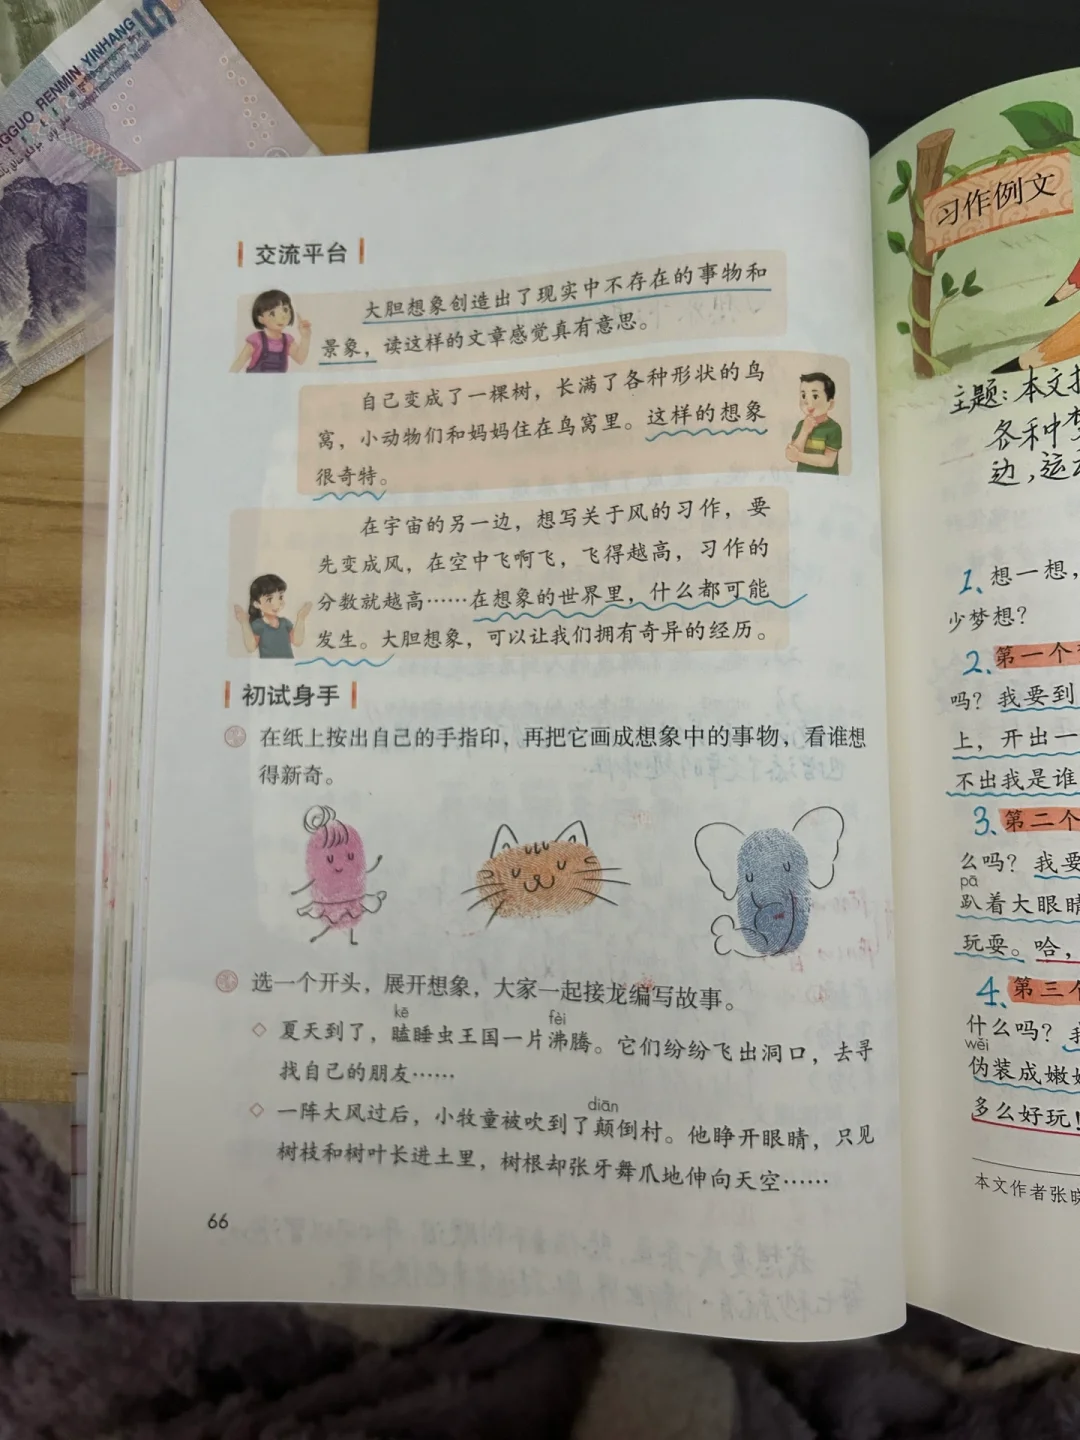 ZHONGGUO RENMIN YINHANG
5
交流平台
大胆想象创造出了现实中不存在的事物和
景象，读这样的文章感觉真有意思。
自己变成了一棵树，长满了各种形状的鸟
窝，小动物们和妈妈住在鸟窝里。这样的想象
很奇特。
在宇宙的另一边，想写关于风的习作，要
先变成风，在空中飞啊飞，飞得越高，习作的
分数就越高……在想象的世界里，什么都可能
发生。大胆想象，可以让我们拥有奇异的经历。
初试身手
在纸上按出自己的手指印，再把它画成想象中的事物，看谁想
得新奇。
选一个开头，展开想象，大家一起接龙编写故事。
kē fèi
夏天到了，瞌睡虫王国一片沸腾。它们纷纷飞出洞口，去寻
找自己的朋友……
diān
一阵大风过后，小牧童被吹到了颠倒村。他睁开眼睛，只见
树枝和树叶长进土里，树根却张牙舞爪地伸向天空……
66
习作例文
主题：本文
各种
边，运
1、想一想，
少梦想？
2、第一个
吗？我要到
上，开出一
不出我是谁
3、第二个
么吗？我要
pā
趴着大眼睛
玩耍。哈，
4、第三个
什么吗？
wěi
伪装成嫩
多么好玩！
本文作者张晓